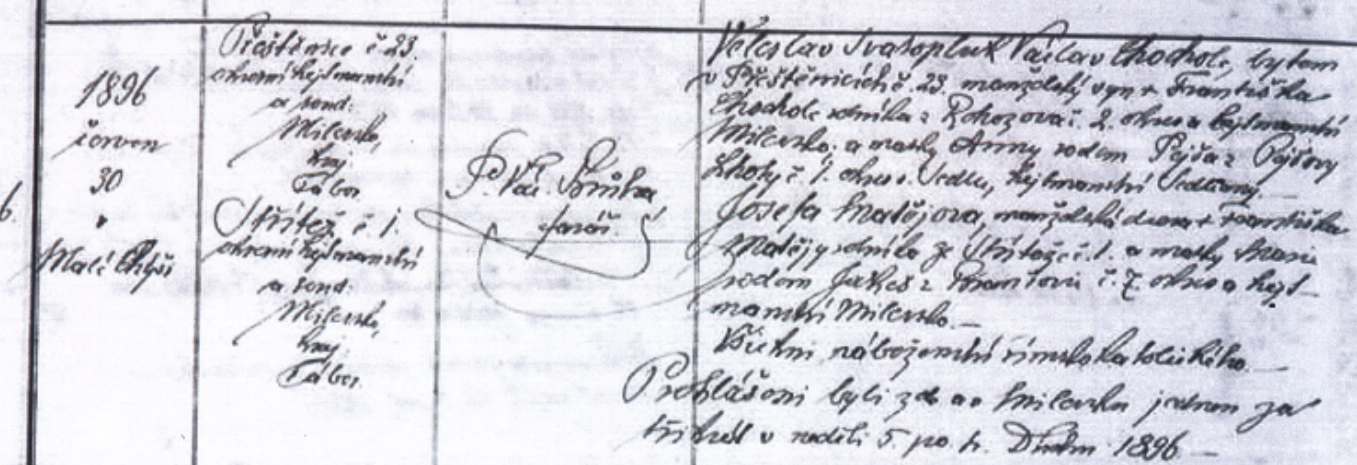 1896
červen
30
v
Malé Chyši
Přeštěnice č. 23.
okresní hejtmanství
a soud:
Milevsko,
kraj.
Tábor.
Střítež č. 1.
okresní hejtmanství
a soud:
Milevsko,
kraj.
Tábor.
P. Vác.
farář.
Věleslav Svatopluk Václav Chochole, bytem
v Přeštěnicích č. 23. manželský syn + Františka
Chochole rolníka z č. 2. okres a hejtmanství
Milevsko. a matky Anny rodem Pejša z Pejšovy
Lhoty č. 1. okres. Sedlec, hejtmanství Sedlčany.
Josefa Matějova, manželská dcera + Františka
Matějy rolníka ze Stříteže č. 1. a matky Marie
rodem z č. 7. okres a hejt-
manství Milevsko.—
Všichni náboženství římskokatolického.—
Prohlášeni byli zde a v Milevsku jednou za
třikrát v neděli 5. po sv. Duchu 1896.—